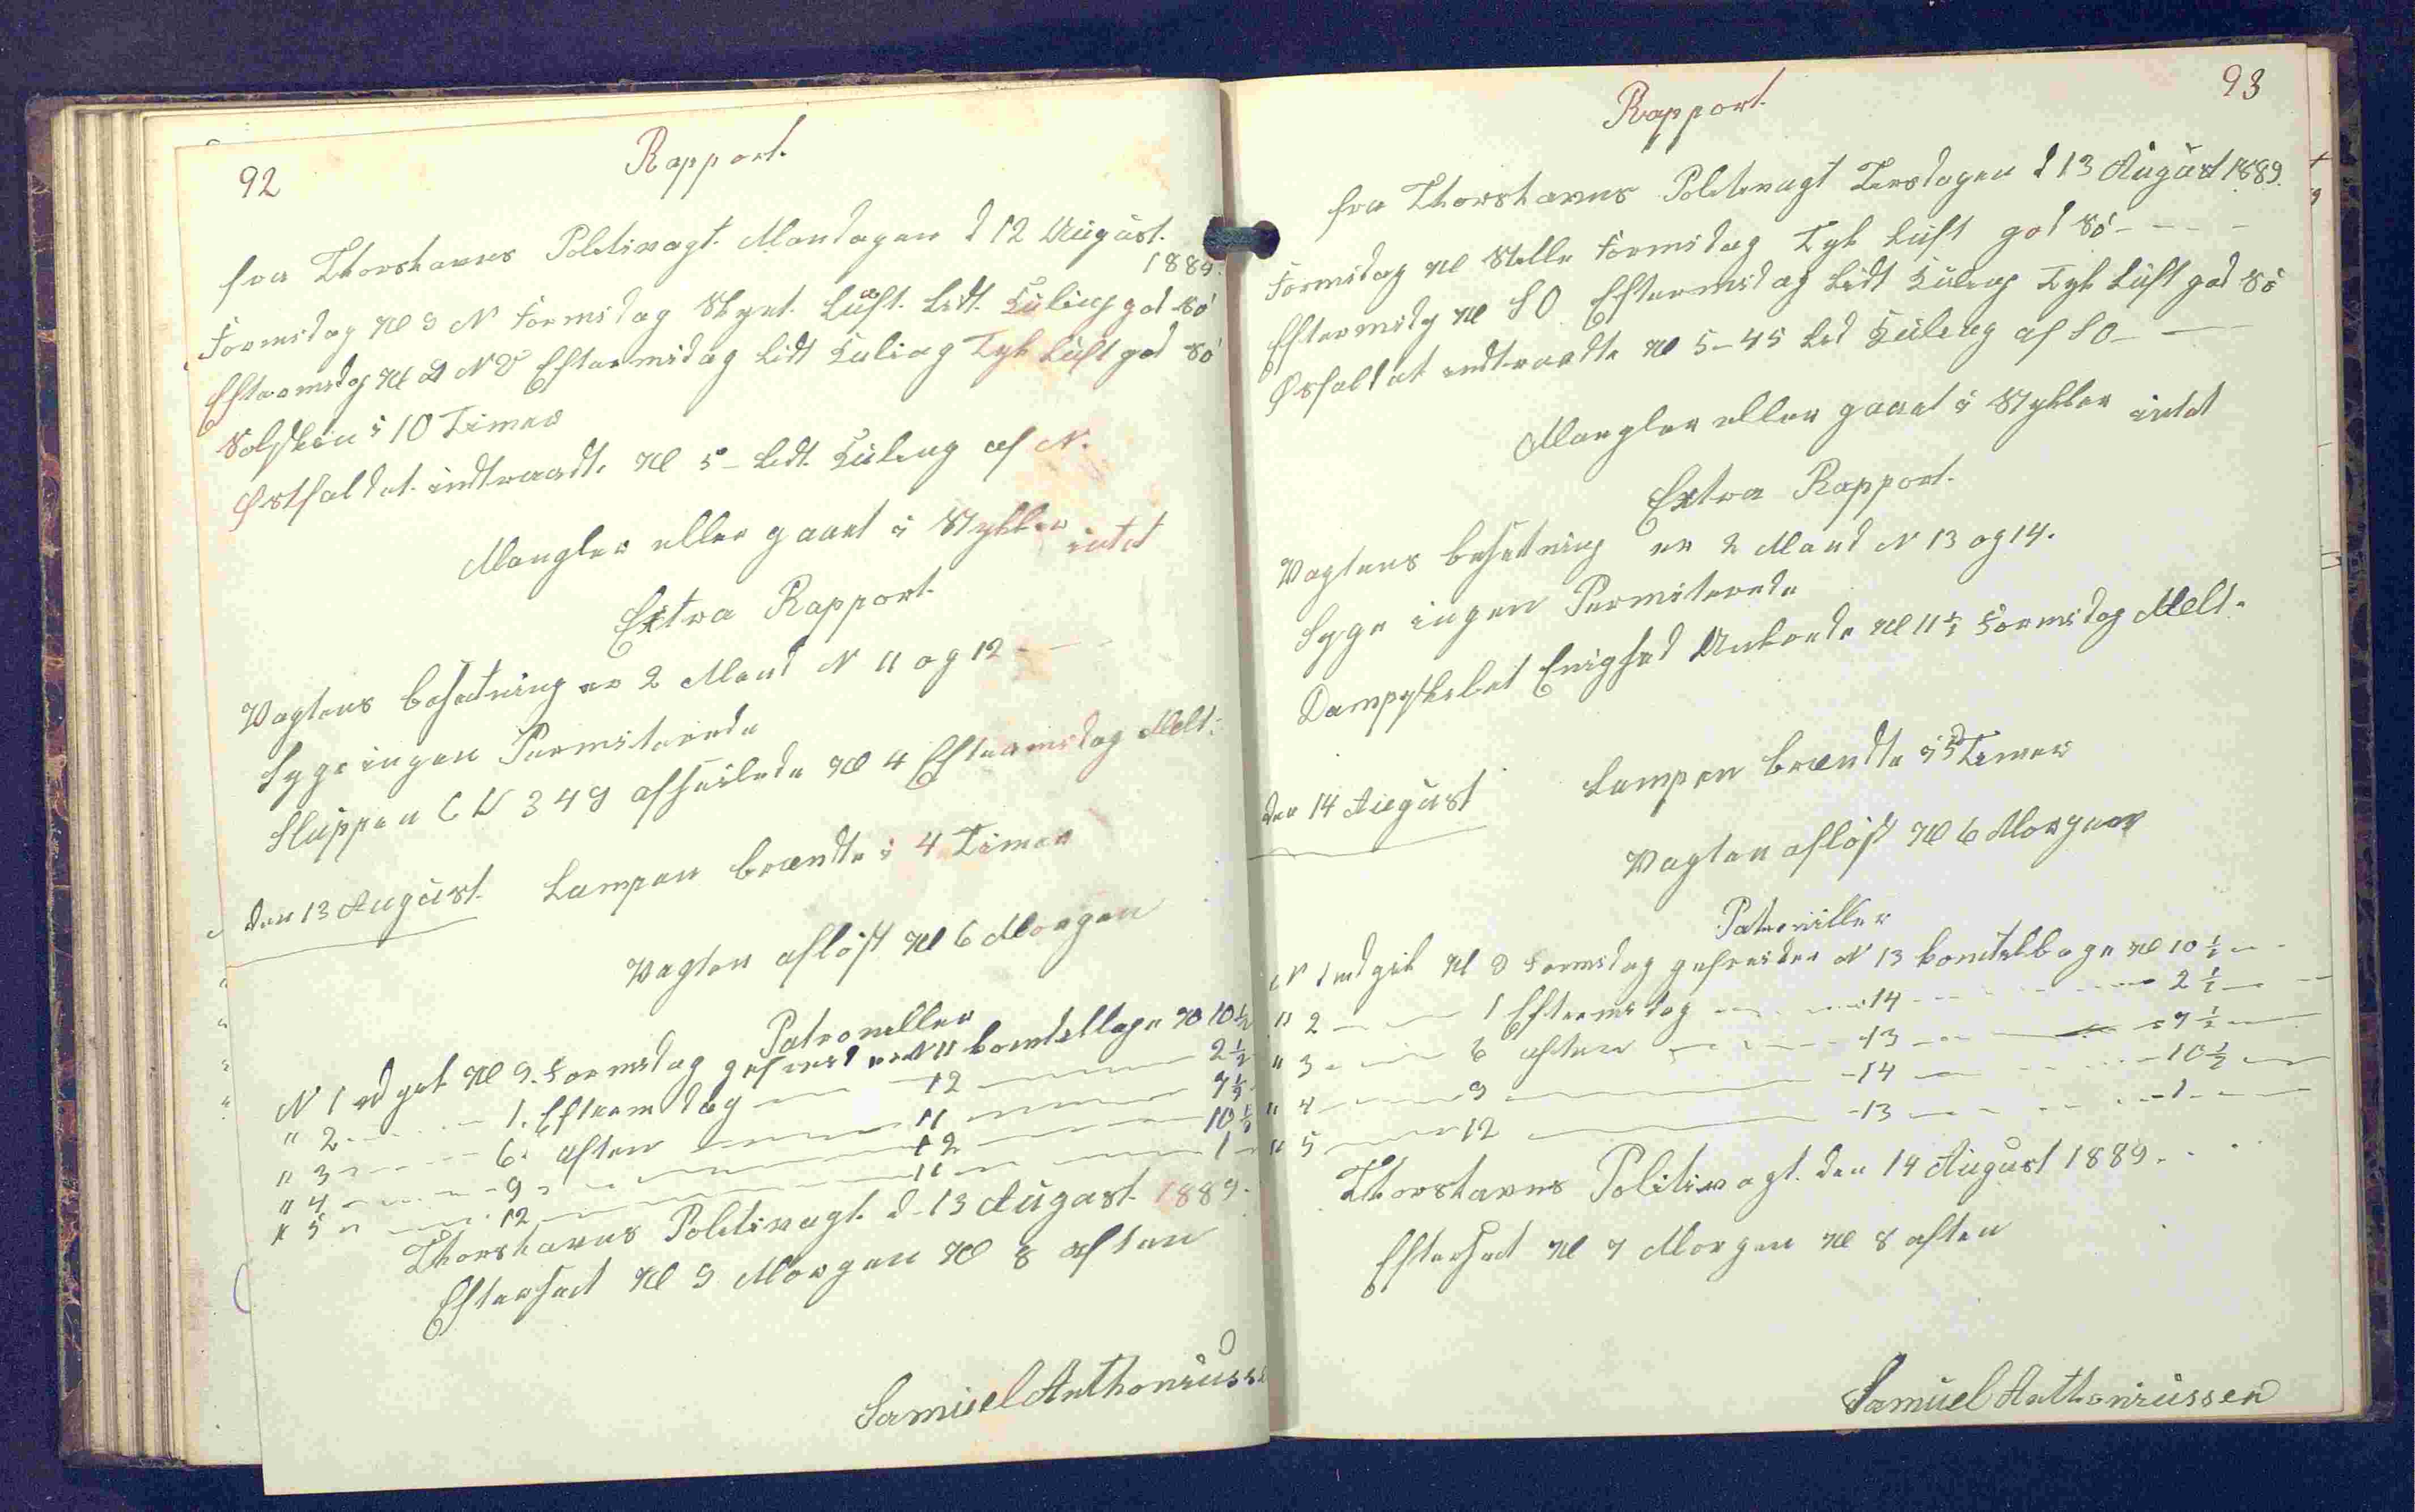 92
Rapport.
fra Thorshavns Politivagt. Mandagen d 12 August.
1889.
Formidag Kl 9 N Formidag Skyet. Luft. Lidt. Kuling god Sö
Eftermidag Kl 2 NV Eftermidag Lidt Kuling Tyk Luft god Sö
Solskin i 10 Timer
Østfaldet indtraadte Kl 5 - Lidt. Kuling af N.
Mangler eller gaaet i Stykker intet
Extra Rapport.
Vagtens besetning er 2 Mand N 11 og 12 - - -
Syge ingen Permiterede
Sluppen C W 349 afseilede Kl 4 Eftermidag Melt.
den 13 August. Lampen brændte i 4 Timer
Vagten aflöst Kl 6 Morgen
Patroueller
N 1 ud gik Kl 9. Formidag gefreider N 11 komtelbage Kl 10 ½
" 2 - - - 1. Eftermidag - - 12 - - - 2 ½
" 3 - - - 6. aften - - - 11 - - - 7 ½
" 4 - - - 9 - - - 12 - - - 10 ½
" 5 - - - 12 - - - 11 - - - 1 -
Thorshavns Politivagt. d. 13 August. 1889.
Efterset Kl 9 Morgen Kl 8 aften
Samuel Anthoniusse
93
Rapport.
fra Thorshavns Politivagt Tirsdagen d 13 August 1889.
Formidag Kl Stille Formidag Tyk Luft god Sö - - - -
Eftermidg Kl SO Eftermidag Lidt Kuling Tyk Luft god Sö
Øsfaldet indtraadte Kl 5 - 45 Lid Kuling af SO - -
Mangler eller gaaet i Stykker intet
Extra Rapport.
Vagtens besetning er 2 Mand N 13 og 14.
Syge ingen Permiterede
Dampskibet Enighed Ankrede Kl 11 ½ Formidag Melt.
den 14 August Lampen brændte i 5 Timer
Vagten aflöst Kl 6 Morgener
Patrouiller
N 1 ud gik Kl 9 Formidag gefreider N 13 komtelbage Kl 10 ½ - -
" 2 - - - 1 Eftermidag - - - 14 - - - 2 ½ - -
" 3 - - - 6 aften - - - 13 - - - 7 ½ - -
" 4 - - - 9 - - - 14 - - - 10 ½ - -
" 5 - - - 12 - - - 13 - - - 1 - -
Thorshavns Politivagt. den 14 August 1889. . .
Efterset Kl 7 Morgen Kl 8 aften
Samuel Anthoniussen